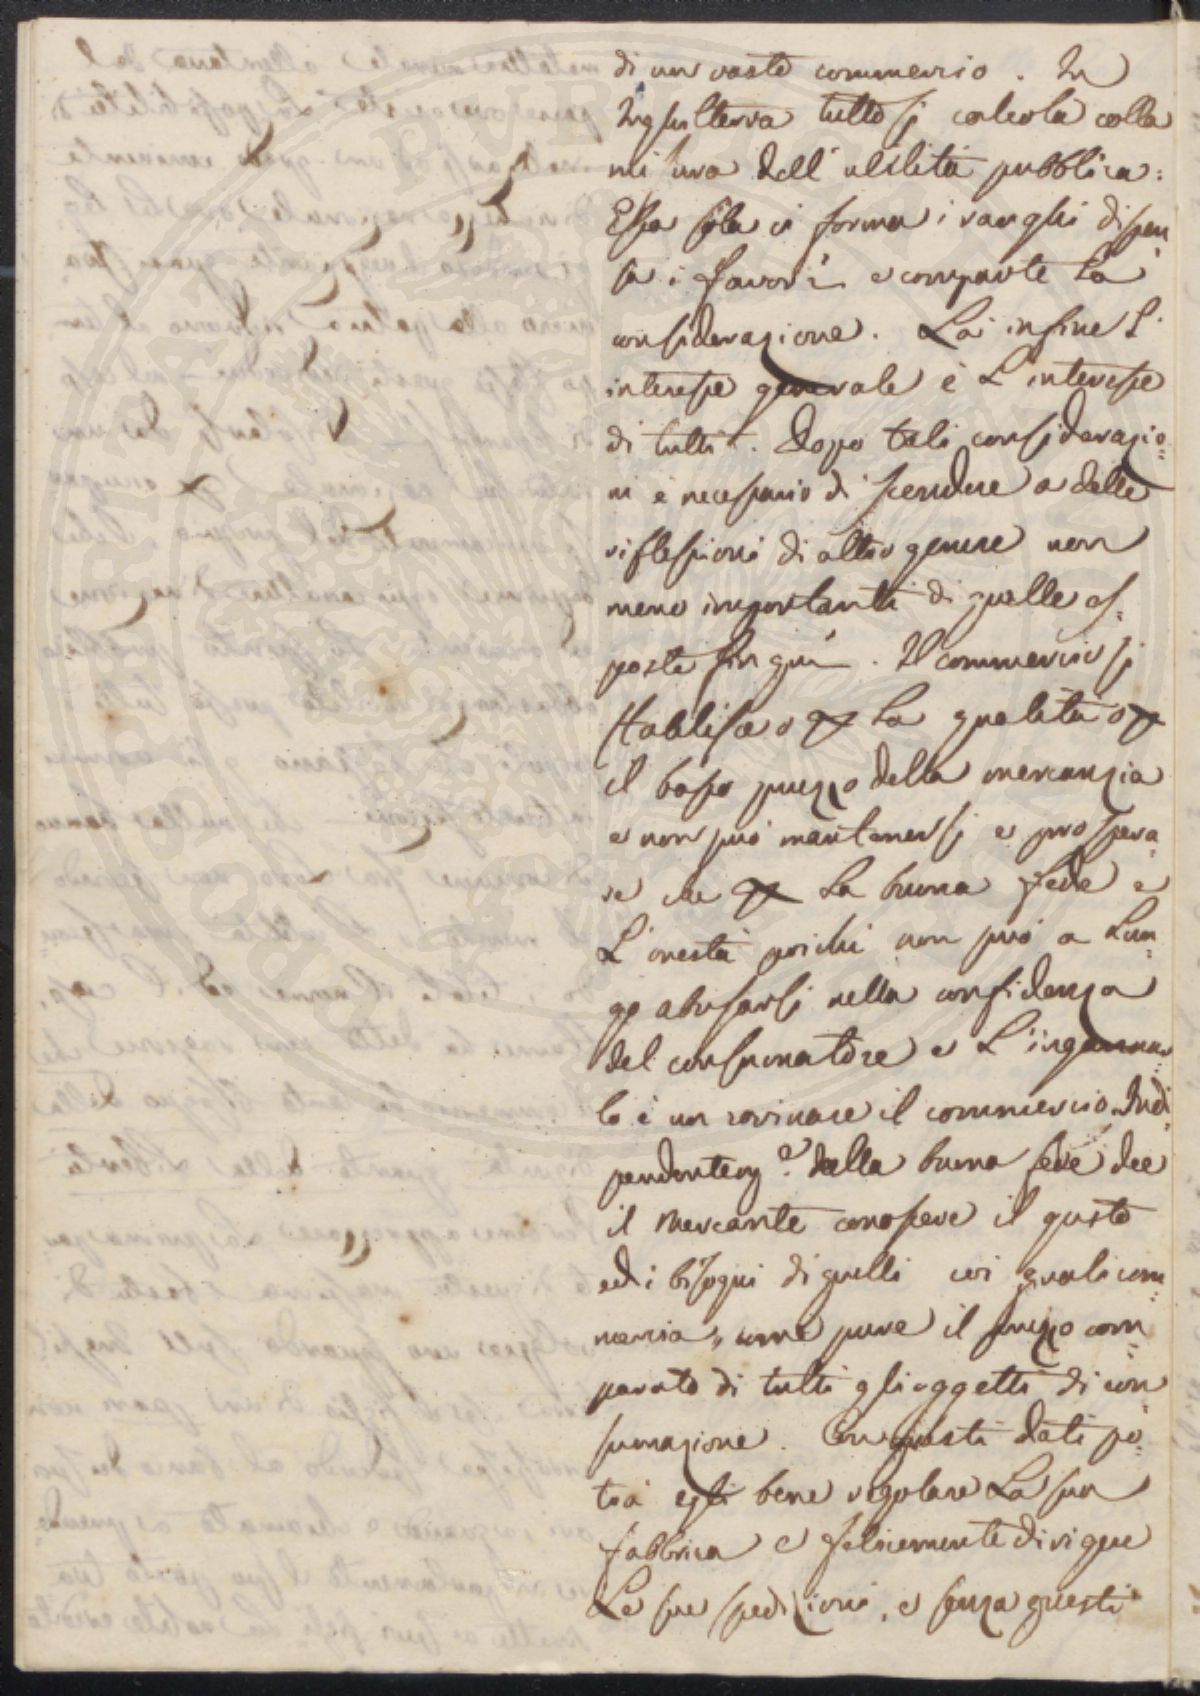 di un vasto commercio. In
Inghilterra tutto si calcola colla
misura dell'utilità pubblica:
Essa sola ci forma i ranghi dispen
sa i favori e comparte la
considerazione. Là infine l'
interesse generale è l'interesse
di tutti. Dopo tali considerazio=
ni è necessario di scendere a delle
riflessioni di altro genere non
meno importanti di quelle es=
poste fin quì. Il commercio si
stabilisce o p la qualità o p
il basso prezzo della mercanzia
e non può mantenersi e prospera=
re che p la buona fede e
l'onestà poichè non può a lun=
go abusarsi nella confidenza
del consumatore e l'inganna=
lo è un rovinare il commercio. Indi=
pendentem.e dalla buona fede dee
il Mercante conoscere il gusto
ed i bisogni di quelli coi quali com=
mercia, come pure il prezzo com=
parato di tutti gli oggetti di con
sumazione. Con questi dati po=
trà egli bene regolare la sua
fabbrica e felicemente dirigere
Le sue spedizioni, e senza questi